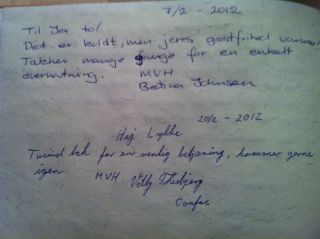 7/2 - 2012
Til Jer to!
Det er koldt, men jeres gæstfrihed varmer!
Takker mange gange for en enkelt
overnatning. MVH
Betina Johnsen
20/2 - 2012
Hej Lykke
Tusind tak for en venlig betjening, kommer gerne
igen.
MVH